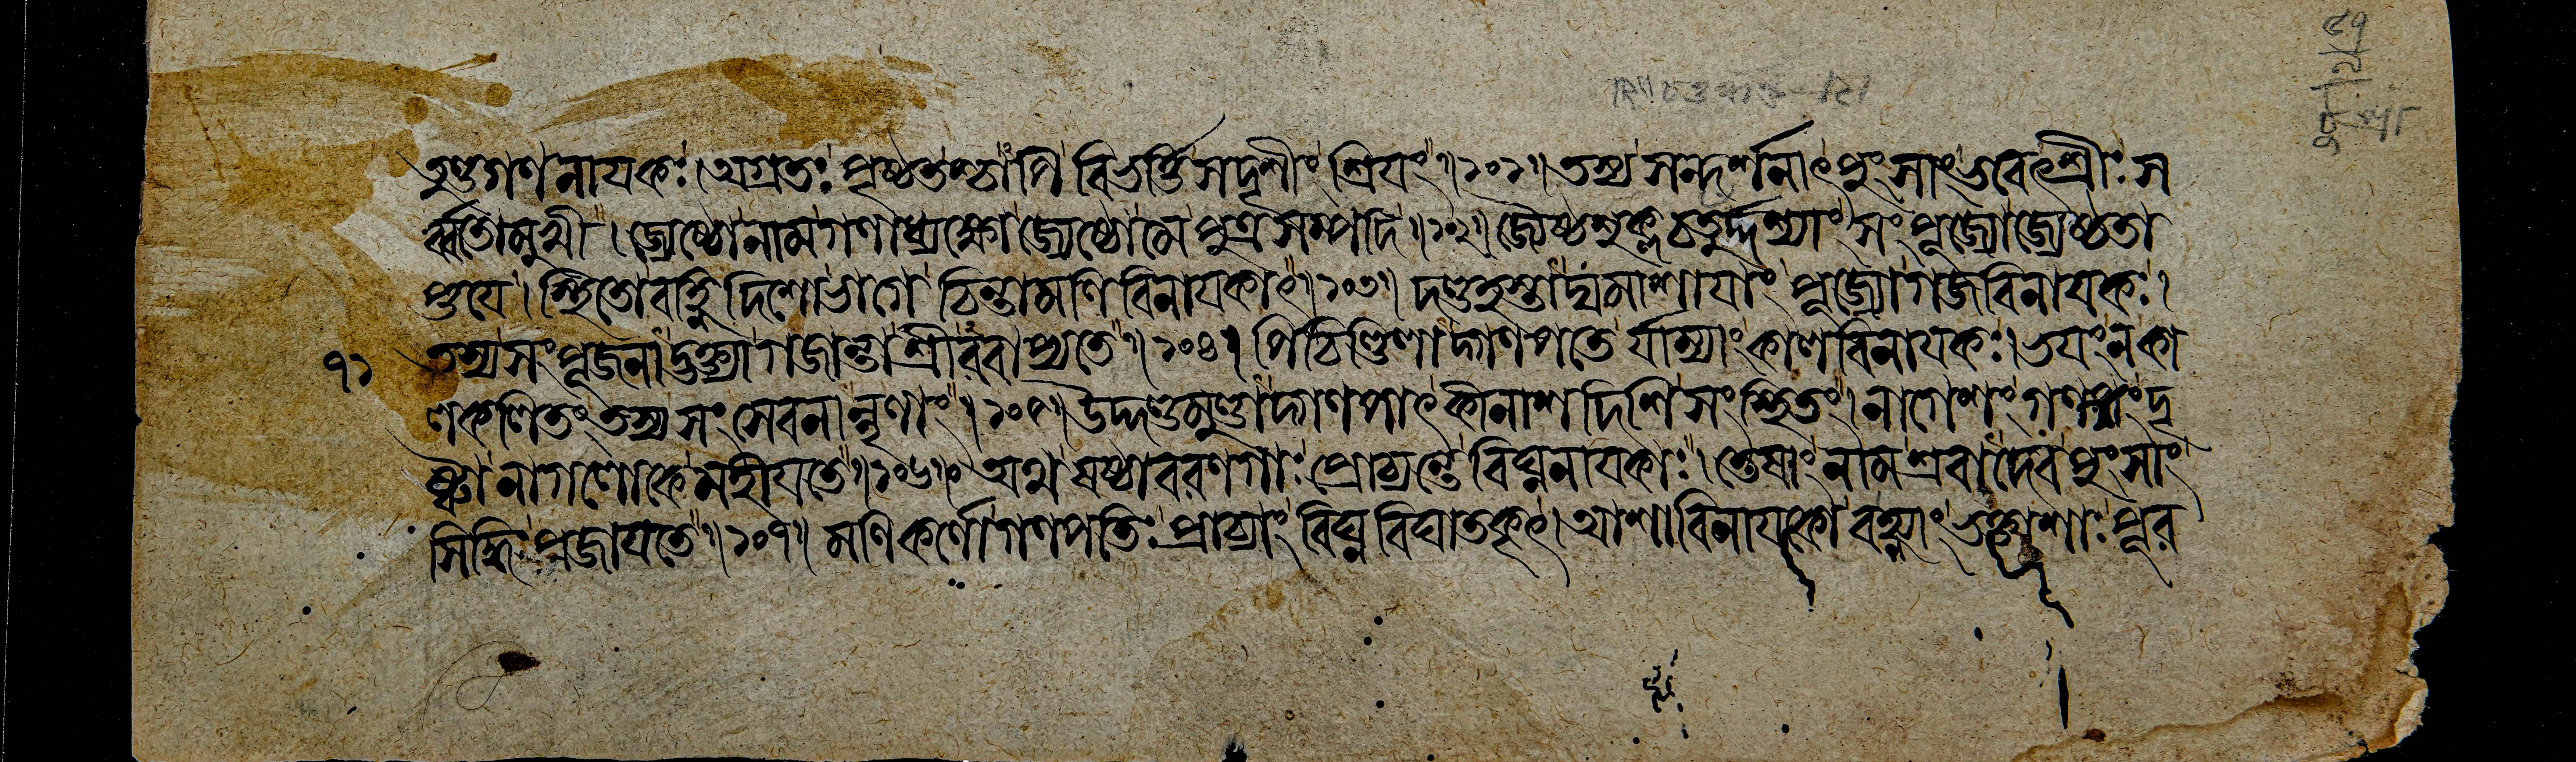 তুণ্ডগণনাযকঃ।অগ্রতঃ পৃষ্ঠতশ্চাপি বিভর্ত্তি সদৃশীং শ্রিযং॥১০১॥তস্য সন্দর্শনাৎ পুংসাং ভবেৎ শ্রীঃ স
র্ব্বতোমুখী।জ্যেষ্ঠোনামগণাধ্যক্ষো জ্যেষ্ঠোমে পুত্রসম্পদি॥১০২॥জ্যৈষ্ঠশুক্লচতুর্দ্দশ্যাং সংপূজ্যোজ্যেষ্ঠতা
প্তযে।স্থিতোবহ্নিদিশোভাগে চিন্তামণিবিনাযকাৎ॥১০৩॥ দন্তহস্তাদ্যমাশাযাং পূজ্যোগজবিনাযকঃ।
৭১ তস্য সংপূজনাদ্ভক্ত্যা গজান্তা শ্রীরবাপ্যতে॥১০৪॥ পিচিণ্ডিলাদ্গণপতে র্যাম্যাং কালবিনাযকঃ।ভযং নকা
লকলিতং তস্য সংসেবনান্নৃণাং॥১০৫॥উদ্দণ্ডমুণ্ডাদ্গণপাৎ কীনাশদিশি সংস্থিতং।নাগেশং গণপং দৃ
ষ্ট্বা নাগলোকে মহীযতে॥১০৬॥০ অথ ষষ্ঠাবরণগাঃ প্রোচ্যন্তে বিঘ্ননাযকাঃ।তেষাং নামশ্রবাদেব পুংসাং
সিদ্ধিঃ প্রজাযতে॥১০৭॥ মণিকর্ণোগণপতিঃ প্রাচ্যাং বিঘ্নবিঘাতকৃৎ।আশাবিনাযকো বহ্ন্যাং ভক্তাশাঃ পূর